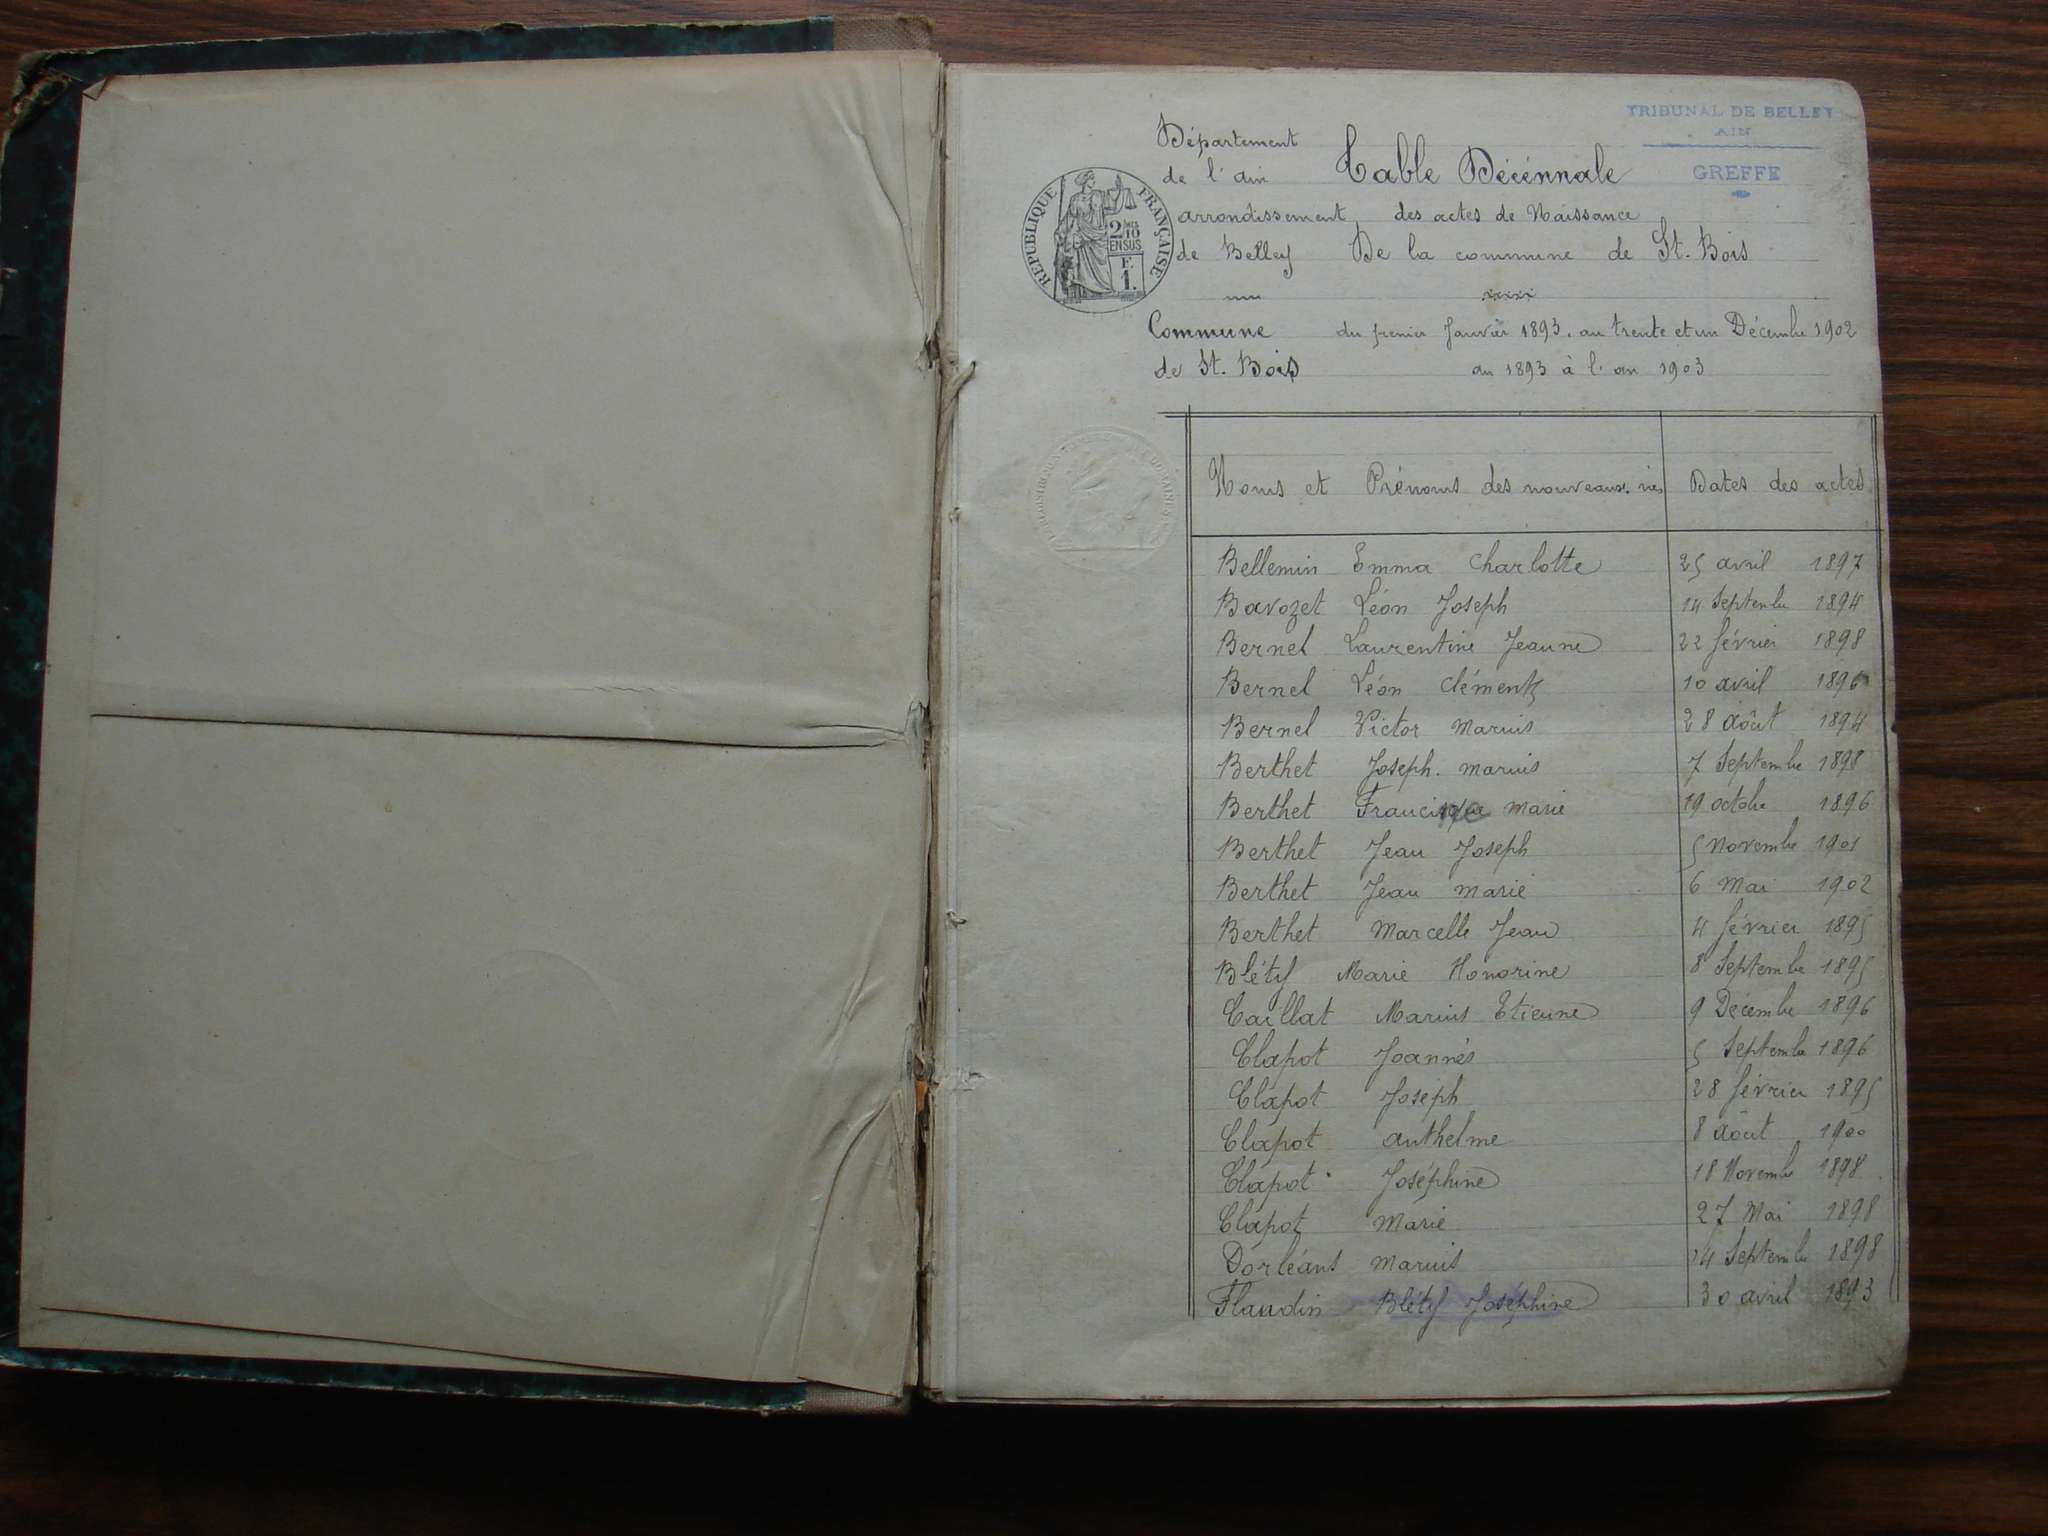 TRIBUNAL DE BELLEY
AIN
GREFFE
Département
de l'ain
Table Décénnale
arrondissement
des actes de Naissance
de Belley
De la commune de St. Bois
REPUBLIQUE FRANÇAISE
2/10
EN SUS
F.
1.
Commune
du premier Janvier 1893. au trente et un Décembre 1902
de St. Bois
an 1893 à l'an 1903
Noms et Prénoms des nouveaux. nés Dates des actes
Bellemin Emma Charlotte 25 avril 1897
Bavozet Léon Joseph 14 Septembre 1894
Bernel Laurentine Jeanne 22 février 1898
Bernel Léon Clément 10 avril 1896
Bernel Victor Marius 28 Août 1894
Berthet Joseph. Marius 7 Septembre 1898
Berthet Marie 19 octobre 1896
Berthet Jean Joseph 5 Novembre 1901
Berthet Jean Marie 6 Mai 1902
Berthet Marcelle Jean 4 février 1895
Bléty Marie Honorine 8 Septembre 1895
Caillat Marius Etienne 9 Décembre 1896
Clapot Joannès 5 Septembre 1896
Clapot Joseph 28 février 1895
Clapot Anthelme 8 Août 1900
Clapot Joséphine 18 Novembre 1898
Clapot Marie 27 Mai 1898
Dorléans Marius 14 Septembre 1898
Flaudin Bléty Joséphine 30 avril 1893